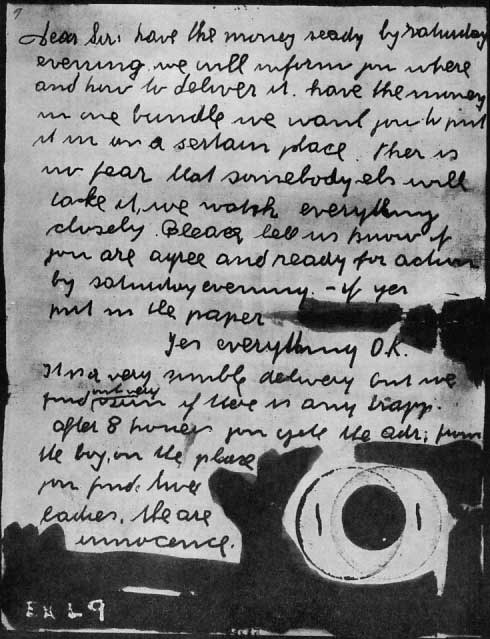 Dear Sir: have the money ready by saturday
evening. we will inform you where
and how to deliver it. have the money
in one bundle we want you to put
it in on a sertain place. Ther is
no fear that somebody els will
take it, we watch everything
closely. Pleace lett us know if
you are agree and ready for action
by saturday evening. - if yes
put in the paper
Yes everything O.K.
It is a very simble delivery but we
find out very sun if there is any trapp.
after 8 houers you gett the adr; from
the boy, on the place
you finde two
ladies. the are
innocence.